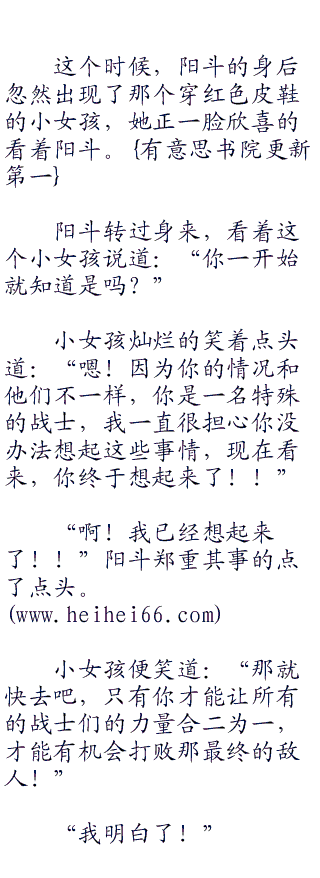 这个时候，阳斗的身后
忽然出现了那个穿红色皮鞋
的小女孩，她正一脸欣喜的
看着阳斗。{有意思书院更新
第一}
阳斗转过身来，看着这
个小女孩说道：“你一开始
就知道是吗？”
小女孩灿烂的笑着点头
道：“嗯！因为你的情况和
他们不一样，你是一名特殊
的战士，我一直很担心你没
办法想起这些事情，现在看
来，你终于想起来了！！”
“啊！我已经想起来
了！！”阳斗郑重其事的点
了点头。
(www.heihei66.com)
小女孩便笑道：“那就
快去吧，只有你才能让所有
的战士们的力量合二为一，
才能有机会打败那最终的敌
人！”
“我明白了！”